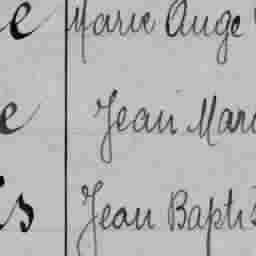 e Marie Ange
e Jean Mar
s Jean Baptis